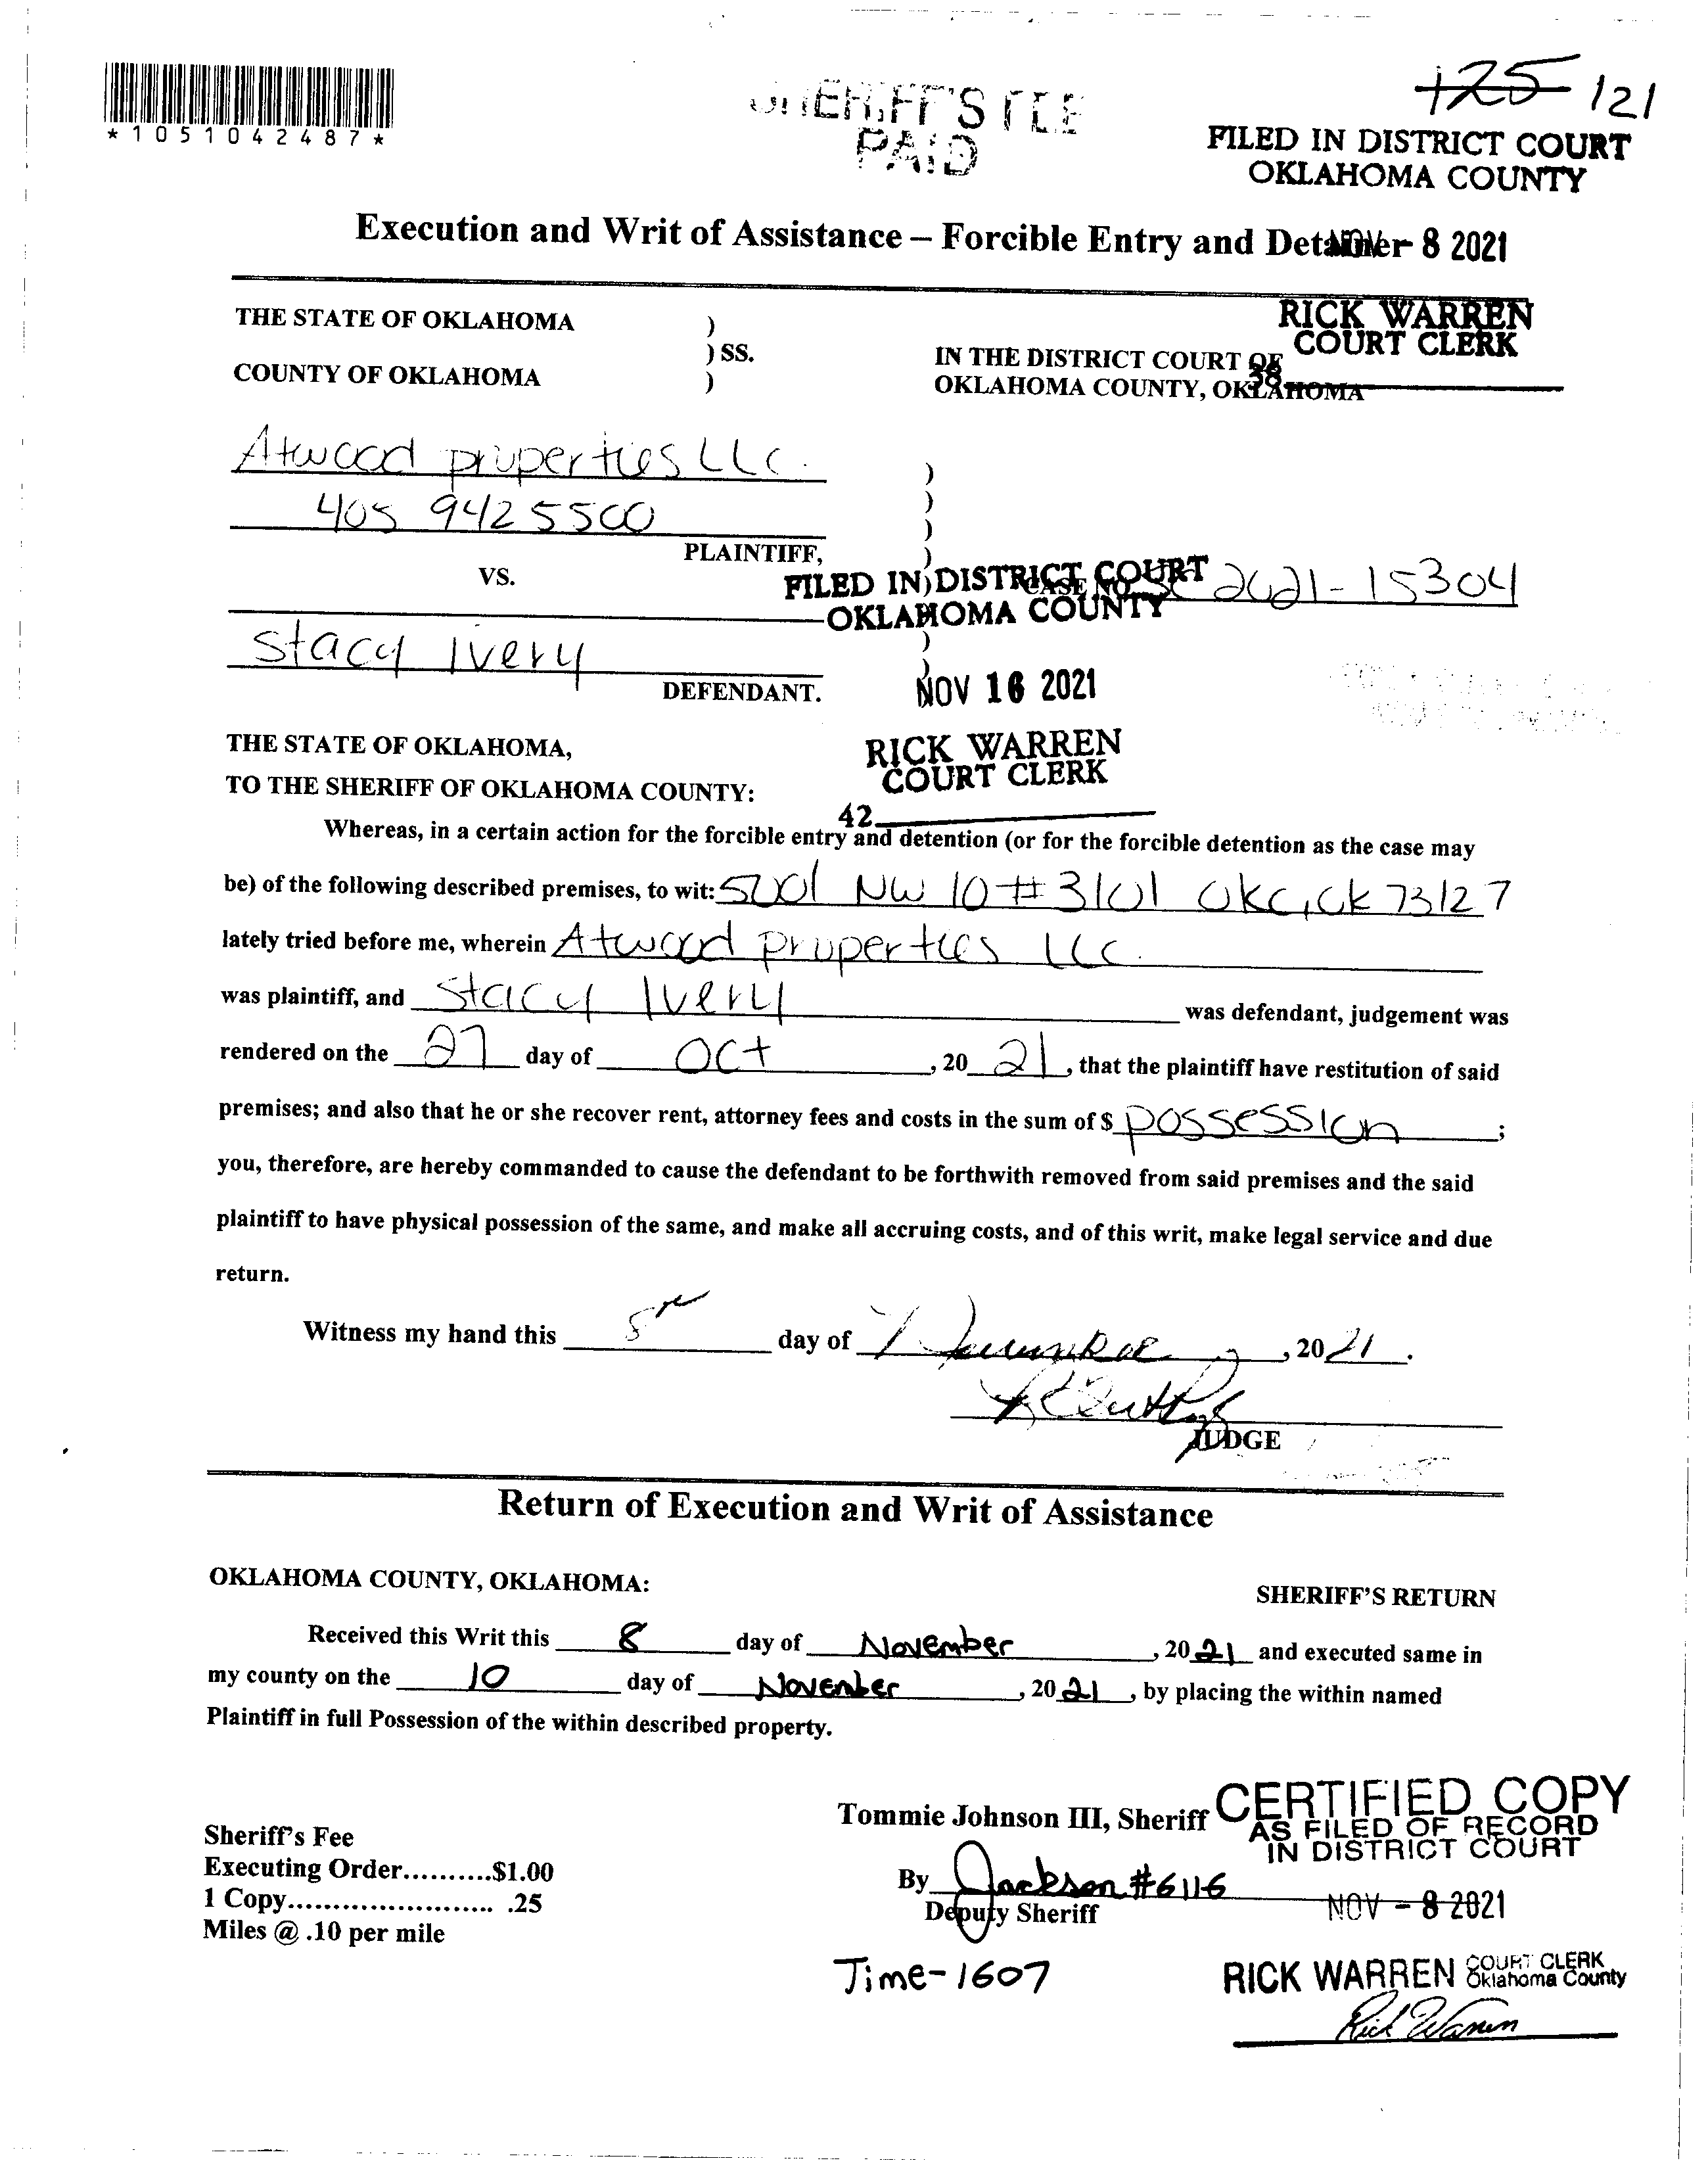 125 121
*1051042487*
SHERIFF'S FEE
PAID
FILED IN DISTRICT COURT
OKLAHOMA COUNTY
Execution and Writ of Assistance – Forcible Entry and Detainer
NOV - 8 2021
RICK WARREN
COURT CLERK
38
THE STATE OF OKLAHOMA )
) SS.
COUNTY OF OKLAHOMA )
IN THE DISTRICT COURT OF
OKLAHOMA COUNTY, OKLAHOMA
Atwood properties LLC.
405 942 5500
PLAINTIFF,
VS.
CASE NO. SC 2021-15304
FILED IN DISTRICT COURT
OKLAHOMA COUNTY
Stacy Ivery
DEFENDANT.
NOV 16 2021
RICK WARREN
COURT CLERK
42
THE STATE OF OKLAHOMA,
TO THE SHERIFF OF OKLAHOMA COUNTY:
Whereas, in a certain action for the forcible entry and detention (or for the forcible detention as the case may
be) of the following described premises, to wit: 5701 NW 10 # 3101 OKC, OK 73127
lately tried before me, wherein Atwood properties LLC.
was plaintiff, and Stacy Ivery was defendant, judgement was
rendered on the 27 day of Oct, 20 21, that the plaintiff have restitution of said
premises; and also that he or she recover rent, attorney fees and costs in the sum of $ possession ;
you, therefore, are hereby commanded to cause the defendant to be forthwith removed from said premises and the said
plaintiff to have physical possession of the same, and make all accruing costs, and of this writ, make legal service and due
return.
Witness my hand this day of November, 20 21.
JUDGE
Return of Execution and Writ of Assistance
OKLAHOMA COUNTY, OKLAHOMA:
SHERIFF'S RETURN
Received this Writ this 8 day of November, 20 21 and executed same in
my county on the 10 day of November, 20 21, by placing the within named
Plaintiff in full Possession of the within described property.
Tommie Johnson III, Sheriff
CERTIFIED COPY
AS FILED OF RECORD
IN DISTRICT COURT
Sheriff's Fee
Executing Order..........$1.00
1 Copy....................... .25
Miles @ .10 per mile
By Jackson #6116
Deputy Sheriff
NOV - 8 2021
Time-1607
RICK WARREN COURT CLERK
Oklahoma County
Rick Warren